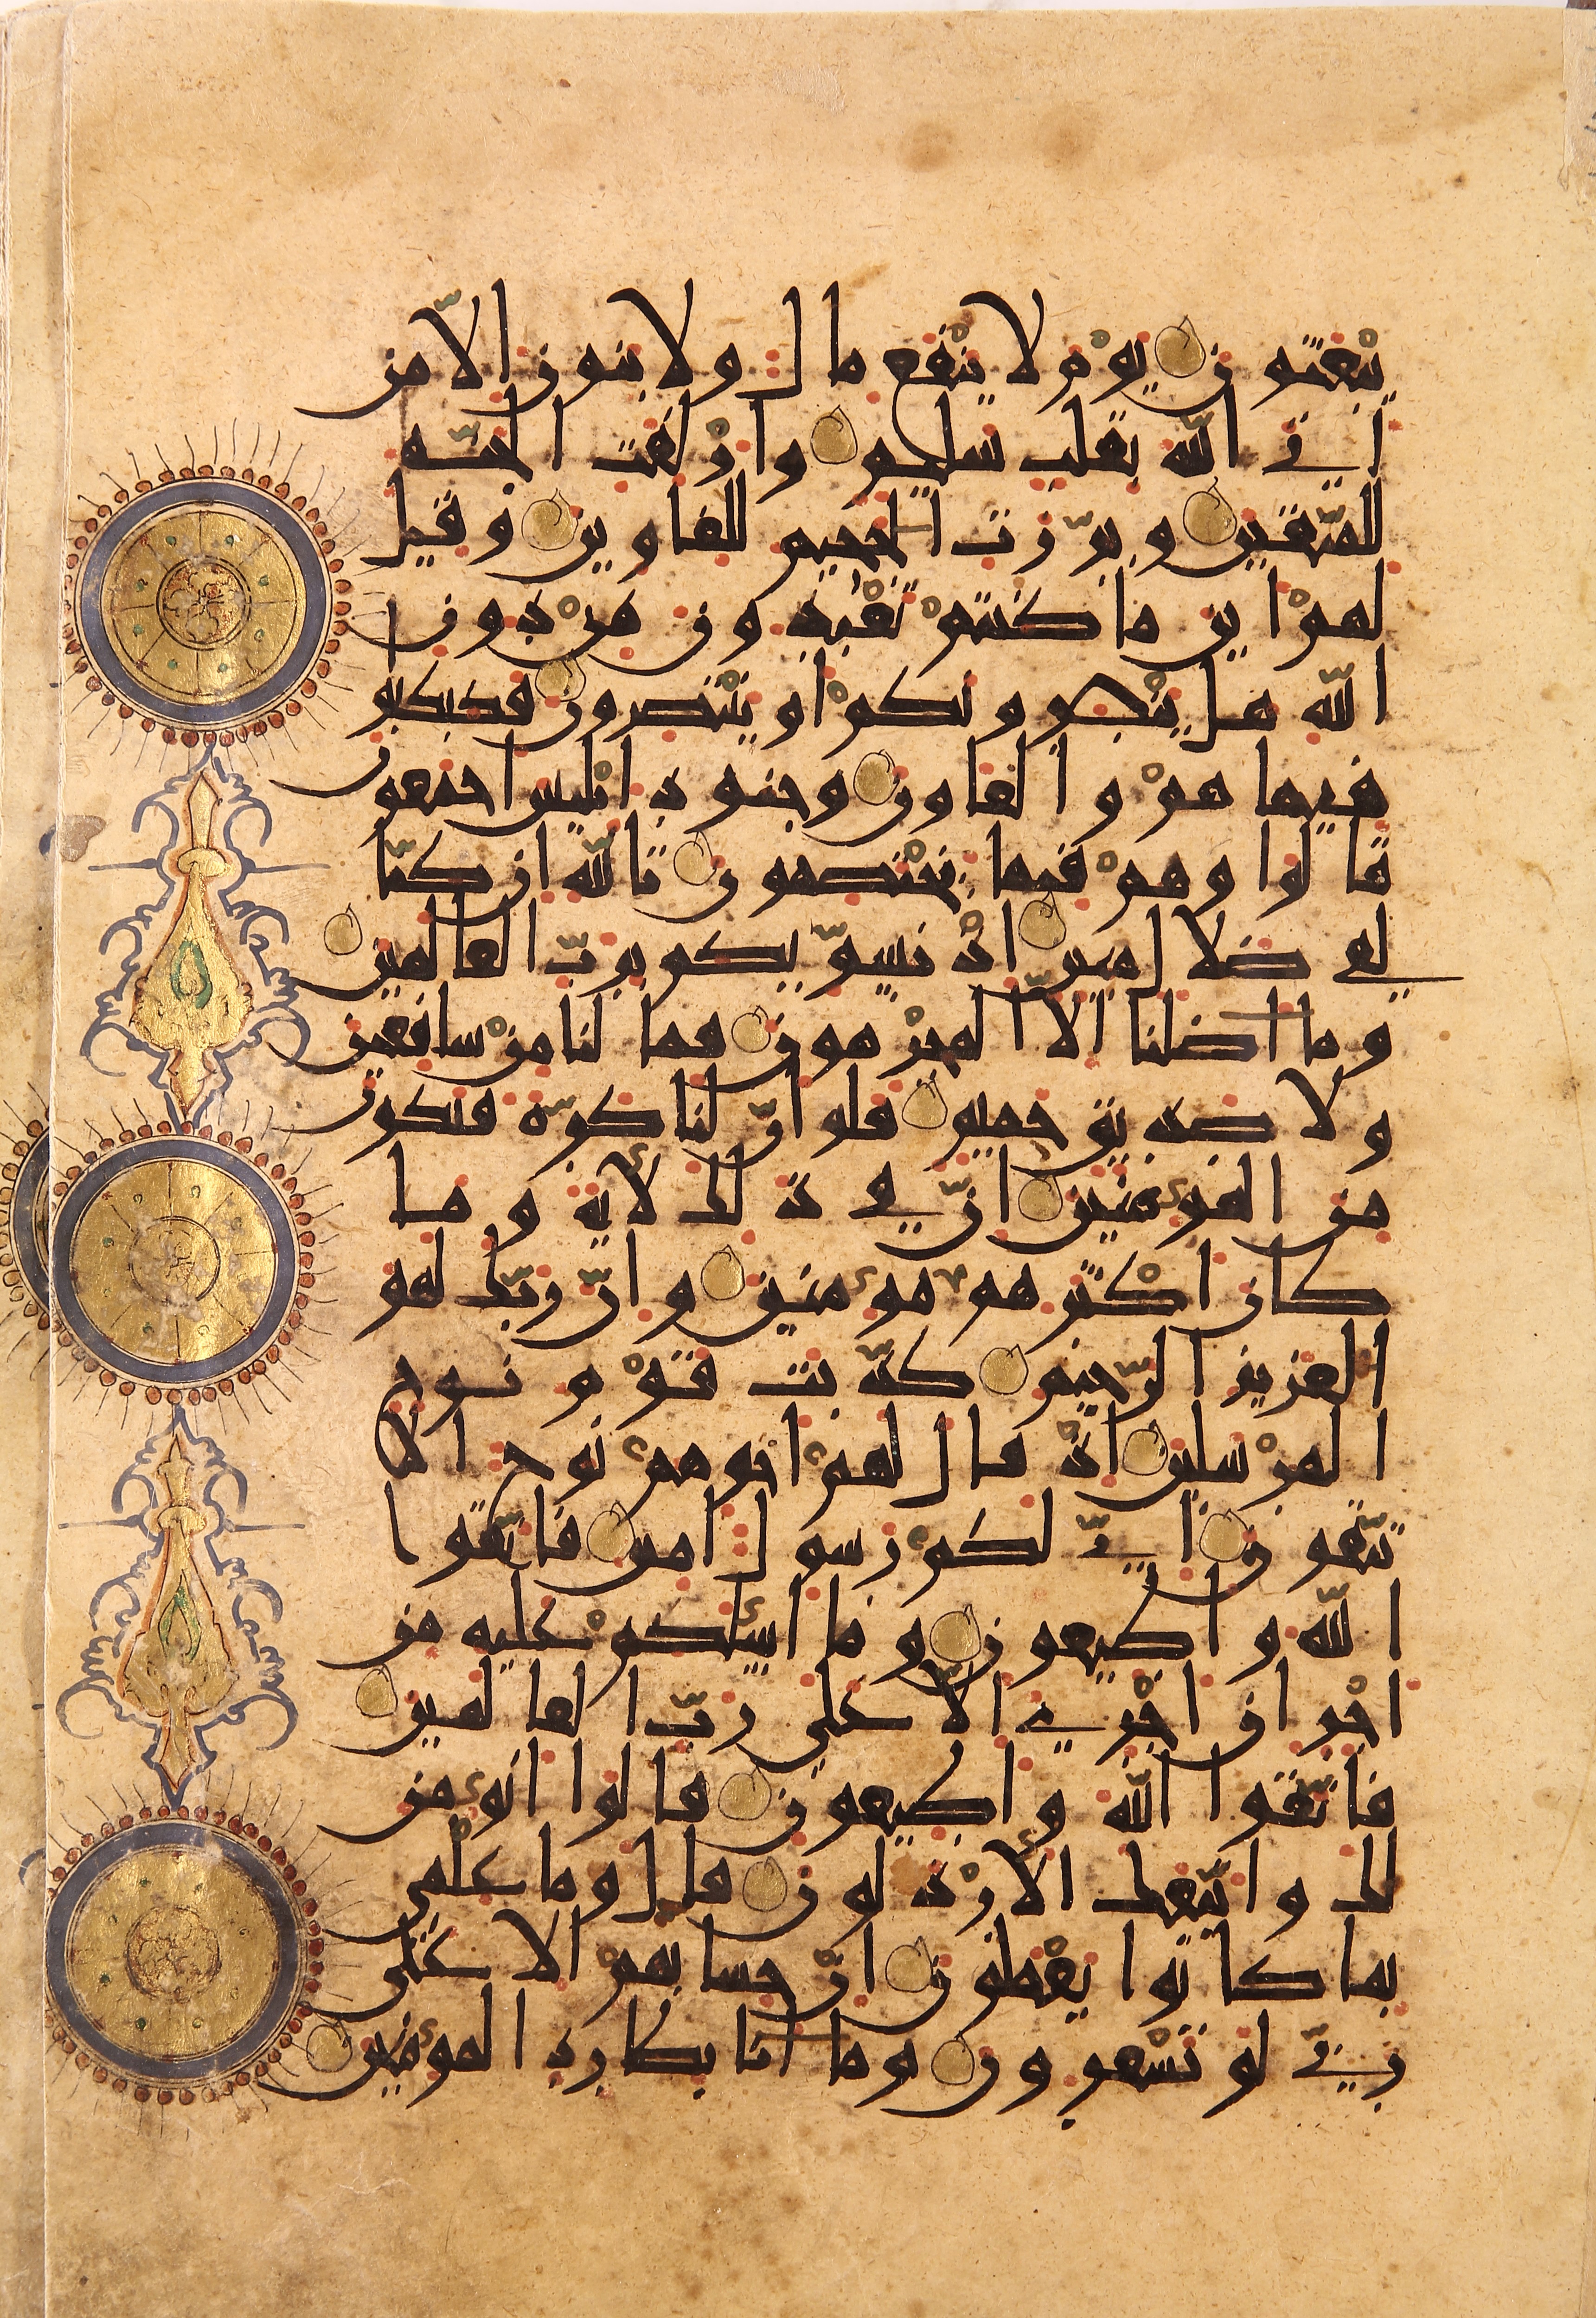 يبعثون يوم لا ينفع مال ولا بنون الا من
اتى الله بقلب سليم وازلفت الجنة
للمتقين وبرزت الجحيم للغاوين وقيل
لهم اين ما كنتم تعبدون من دون
الله هل ينصرونكم او ينتصرون فكبكبو
فيها هم والغاون وجنود ابليس اجمعون
قالوا وهم فيها يختصمون تالله ان كنا
لفي ضلال مبين اذ نسويكم برب العالمين
وما اضلنا الا المجرمون فما لنا من شافعين
ولا صديق حميم فلو ان لنا كرة فنكون
من المومنين ان في ذلك لاية وما
كان اكثرهم مومنين وان ربك لهو
العزيز الرحيم كذبت قوم نوح
المرسلين اذ قال لهم اخوهم نوح الا
تتقون اني لكم رسول امين فاتقوا
الله واطيعون وما اسلكم عليه من
اجر ان اجري الا على رب العالمين
فاتقوا الله واطيعون قالوا انومن
لك واتبعك الارذلون قال وما علمي
بما كانوا يعملون ان حسابهم الا على
ربي لو تشعرون وما انا بطارد المومنين